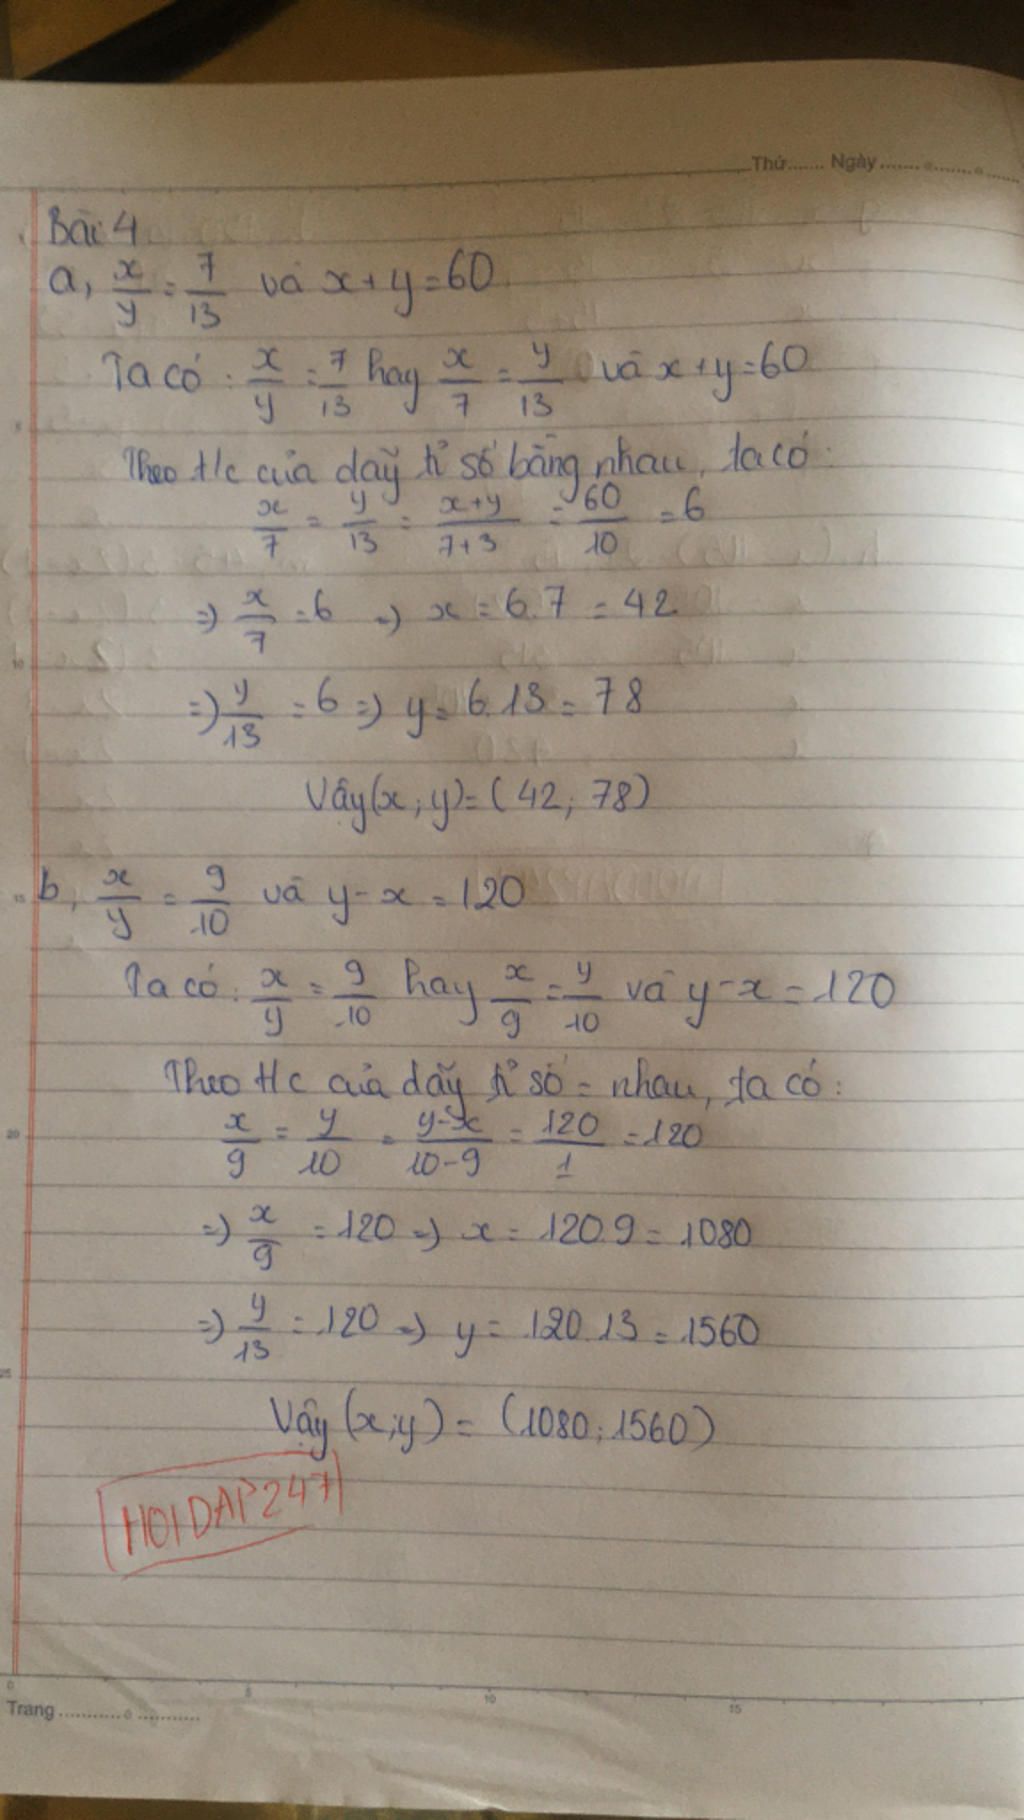 Thứ....... Ngày.............
Bài 4
a, x/y = 7/13 và x+y=60
Ta có : x/y = 7/13 hay x/7 = y/13 và x+y=60
Theo t/c của dãy tỉ số bằng nhau, ta có :
x/7 = y/13 = x+y/7+3 = 60/10 = 6
=> x/7 = 6 => x = 6.7 = 42
=> y/13 = 6 => y = 6.13 = 78
Vậy (x; y) = (42; 78)
b, x/y = 9/10 và y-x = 120
Ta có : x/y = 9/10 hay x/9 = y/10 và y-x = 120
Theo t/c của dãy tỉ số = nhau, ta có :
x/9 = y/10 = y-x/10-9 = 120/1 = 120
=> x/9 = 120 => x = 120.9 = 1080
=> y/13 = 120 => y = 120.13 = 1560
Vậy (x;y) = (1080; 1560)
HOIDAP247
0 5 10 15
Trang ......................